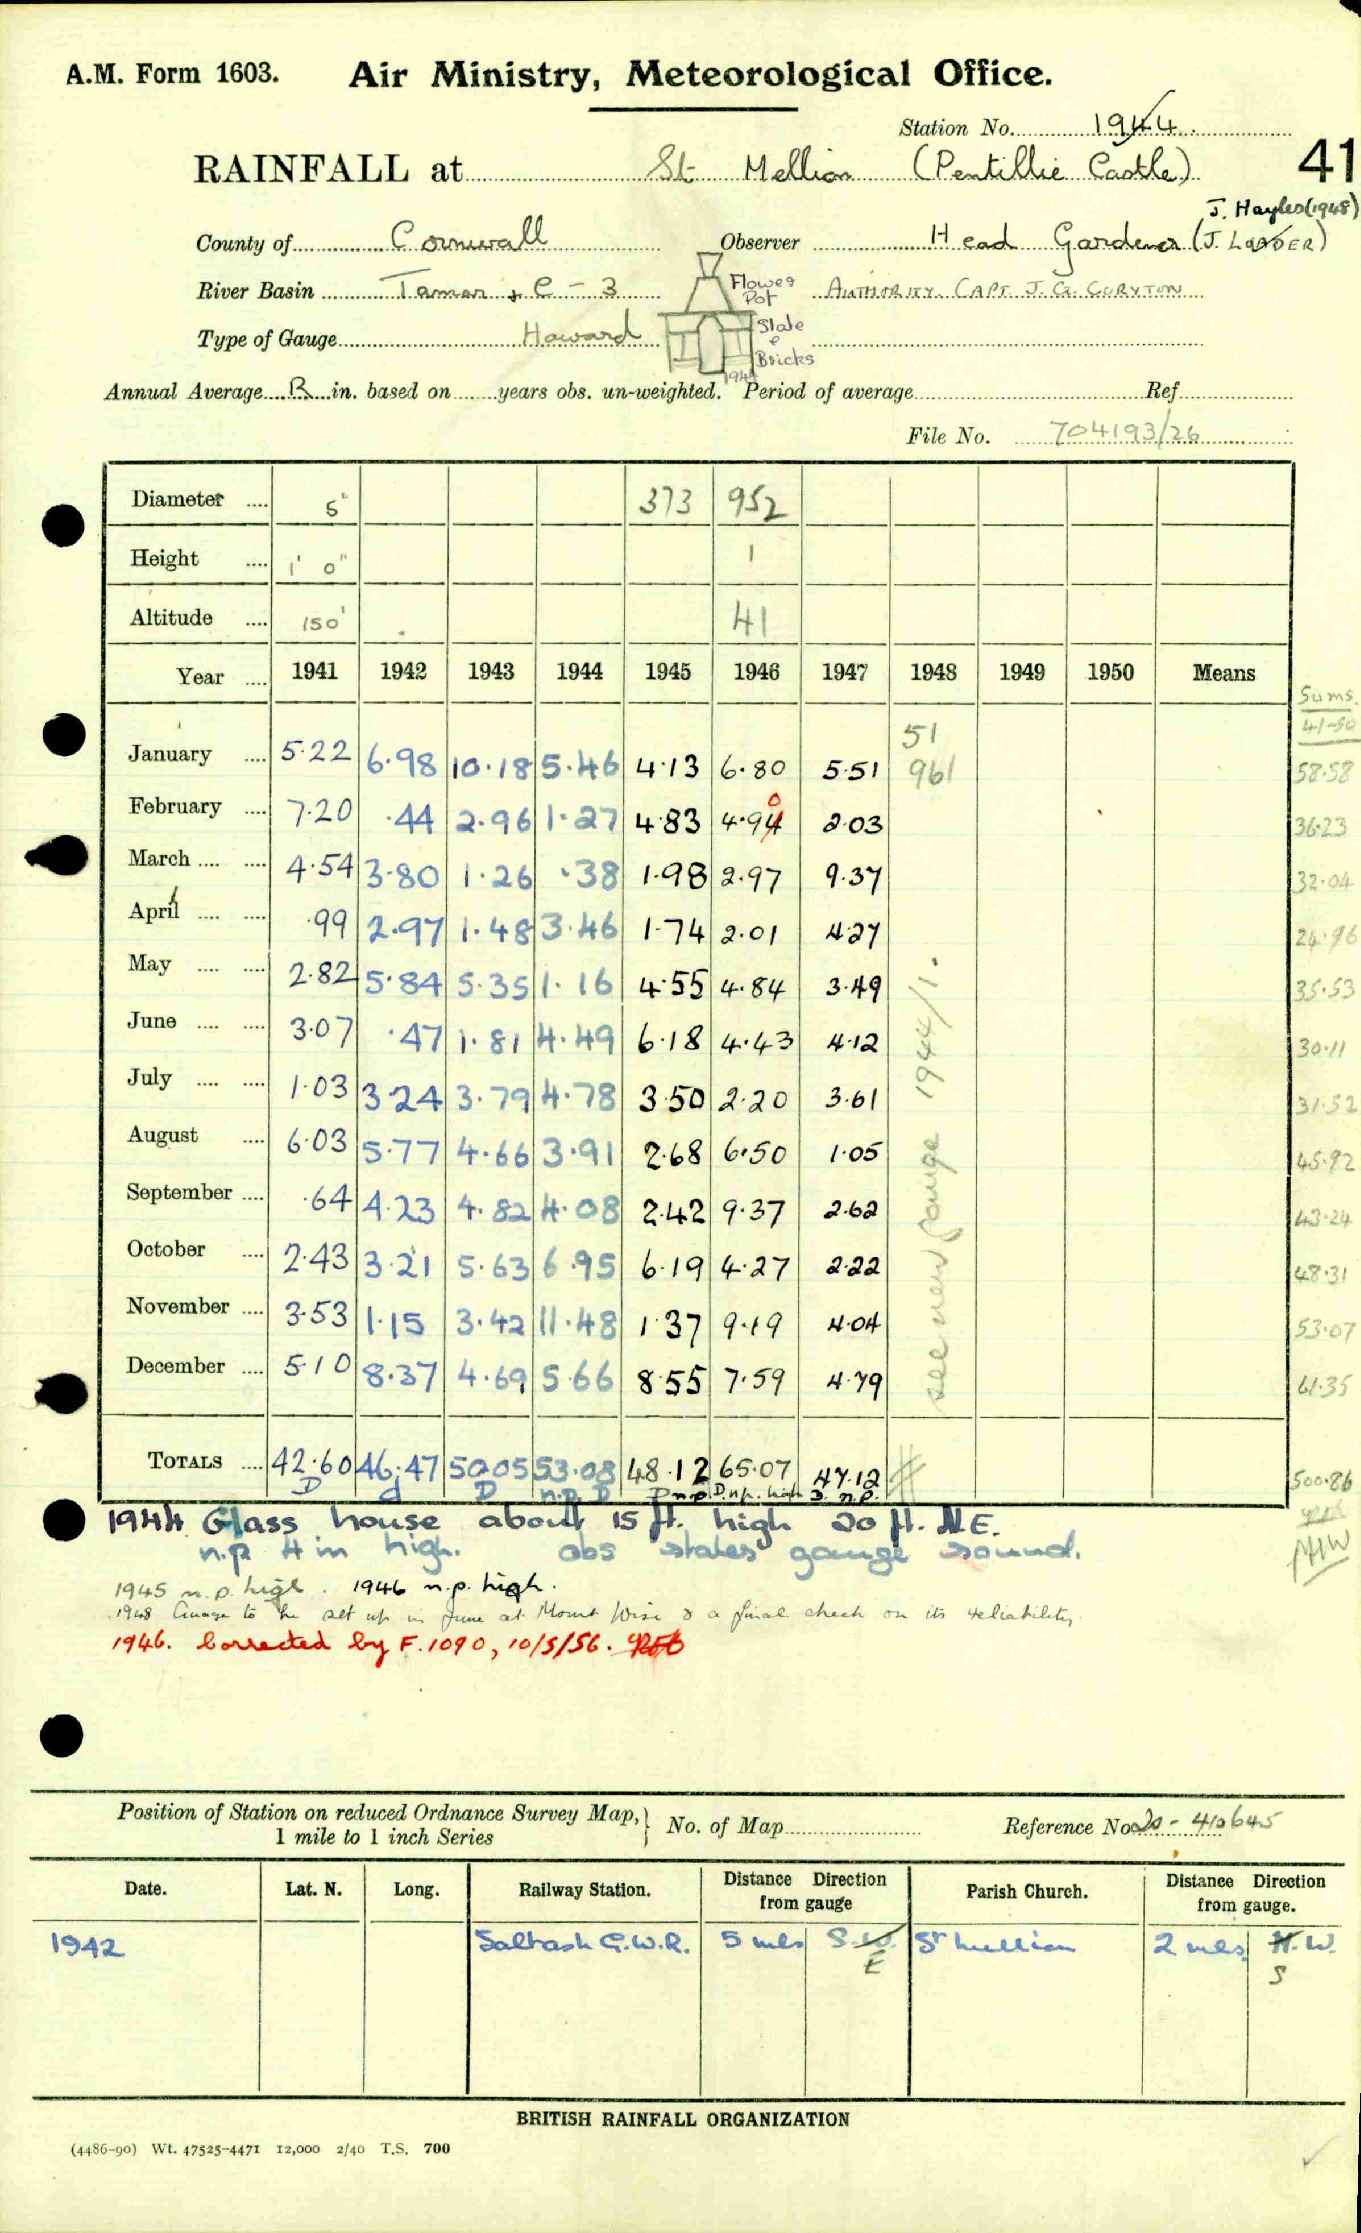 A.M. Form 1603. Air Ministry, Meteorological Office.
Station No. 1944
41
RAINFALL at St. Mellion (Pentillie Castle)
J. Hayles (1948)
County of Cornwall Observer Head Gardener (J. LOADER)
River Basin Tamar & C - 3 Flower Pot AUTHORITY CAPT. J. G. CORYTON
Type of Gauge Howard Slate & Bricks
1944
Annual Average R in. based on years obs. un-weighted. Period of average Ref.
File No. 704193/26
Diameter .... 5" 373 952
Height .... 1' 0" 1
Altitude .... 150' 41
Year .... 1941 1942 1943 1944 1945 1946 1947 1948 1949 1950 Means Sums 41-50
51
January .... 5.22 6.98 10.18 5.46 4.13 6.80 5.51 961 58.58
0
February .... 7.20 .44 2.96 1.27 4.83 4.94 2.03 36.23
March .... .... 4.54 3.80 1.26 .38 1.98 2.97 9.37 32.04
April .... .... .99 2.97 1.48 3.46 1.74 2.01 4.27 24.96
May .... .... 2.82 5.84 5.35 1.16 4.55 4.84 3.49 35.53
June .... .... 3.07 .47 1.81 4.49 6.18 4.43 4.12 30.11
July .... .... 1.03 3.24 3.79 4.78 3.50 2.20 3.61 31.52
August .... 6.03 5.77 4.66 3.91 2.68 6.50 1.05 45.92
September .... .64 4.23 4.82 4.08 2.42 9.37 2.62 43.24
October .... 2.43 3.21 5.63 6.95 6.19 4.27 2.22 48.31
November .... 3.53 1.15 3.42 11.48 1.37 9.19 4.04 53.07
December .... 5.10 8.37 4.69 5.66 8.55 7.59 4.79 61.35
see new gauge 1944/1.
TOTALS .... 42.60 46.47 50.05 53.08 48.12 65.07 47.12 500.86
D d D n.p. D D n.p. D. n.p. high D. n.p.
1944 Glass house about 15 ft. high 20 ft. N.E.
n.p 4 in high. obs states gauge sound.
1945 n.p. high. 1946 n.p. high.
1948 Gauge to be set up in June at Mount Wise & a final check on its reliability.
1946. Corrected by F.1090, 10/5/56.
Position of Station on reduced Ordnance Survey Map, 1 mile to 1 inch Series No. of Map Reference No. 20 - 410645
Date. Lat. N. Long. Railway Station. Distance Direction from gauge Parish Church. Distance Direction from gauge.
1942 Saltash G.W.R. 5 mls S.W. St Mellion 2 mls N.W.
E S
BRITISH RAINFALL ORGANIZATION
(4486-90) Wt. 47525-4471 12,000 2/40 T.S. 700